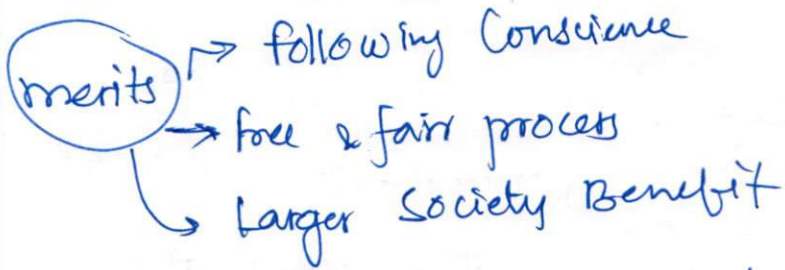 following Conscience
merits
free & fair process
Larger Society Benefit